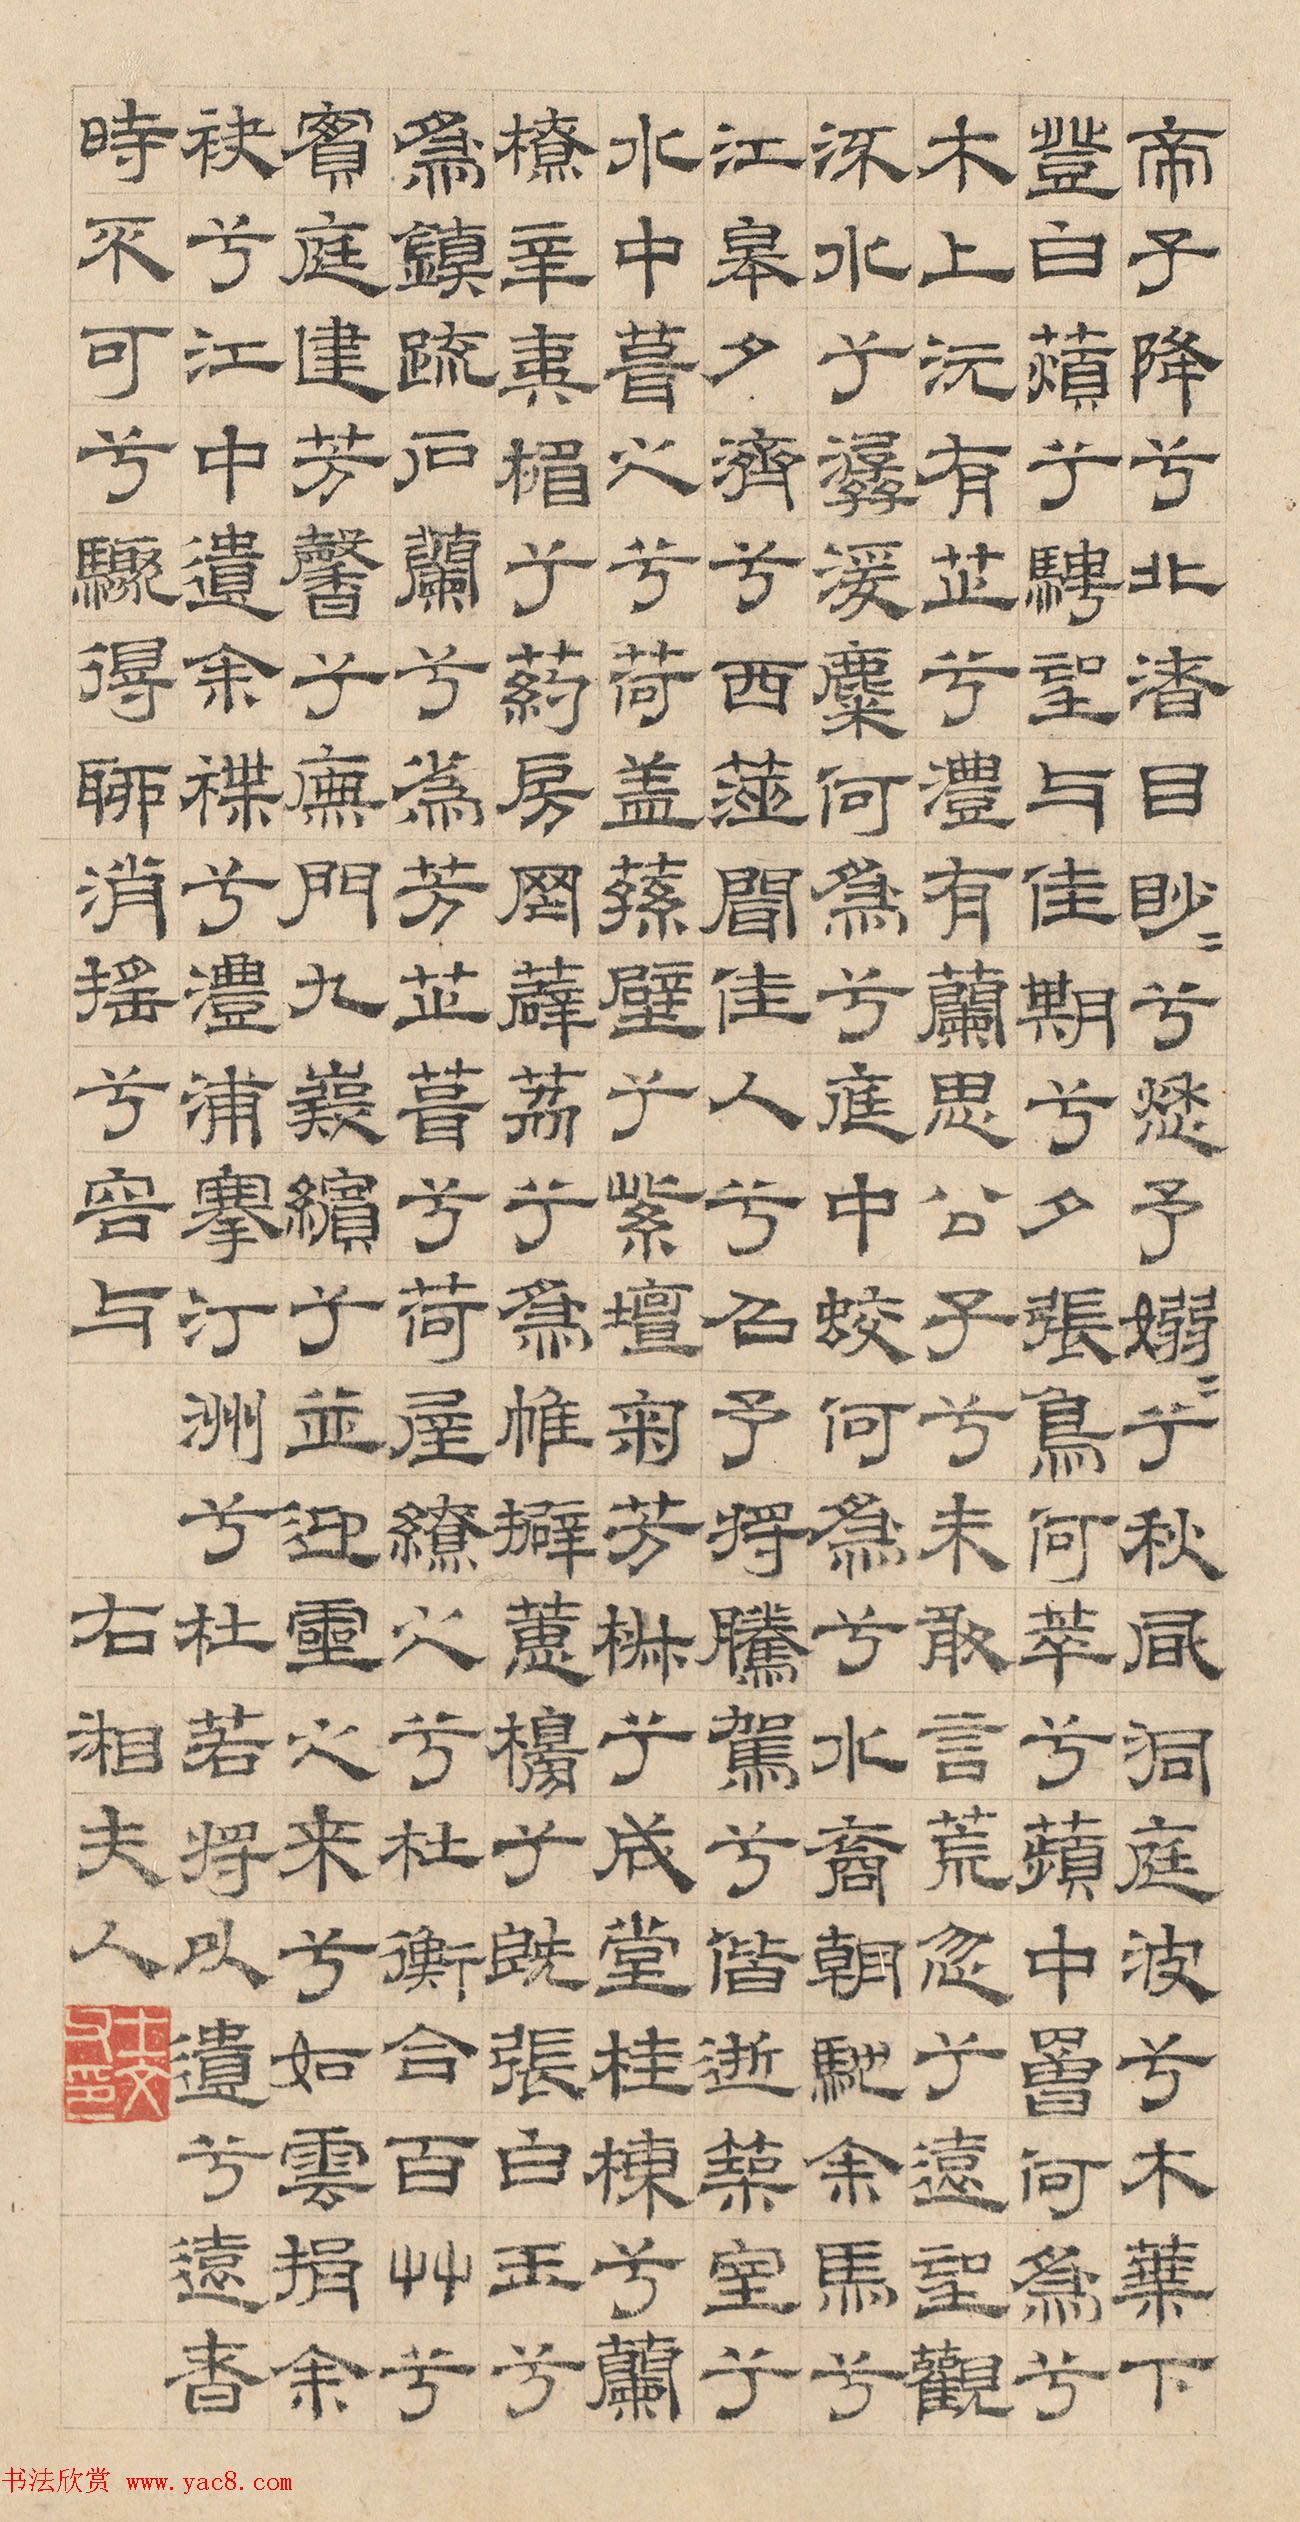 帝子降兮北渚目眇〻兮愁予嫋〻兮秋風洞庭波兮木葉下
登白薠兮騁望与佳期兮夕張鳥何萃兮蘋中罾何爲兮
木上沅有芷兮澧有蘭思公子兮未敢言荒忽兮遠望觀
流水兮潺湲麋何爲兮庭中蛟何爲兮水裔朝馳余馬兮
江皋夕濟兮西澨聞佳人兮召予將騰駕兮偕逝築室兮
水中葺之兮荷盖蓀壁兮紫壇菊芳椒兮成堂桂棟兮蘭
橑辛夷楣兮葯房罔薜荔兮爲帷擗蕙櫋兮既張白玉兮
爲鎮疏石蘭兮爲芳芷葺兮荷屋繚之兮杜衡合百艸兮
實庭建芳馨兮廡門九嶷繽兮並迎靈之来兮如雲捐余
袂兮江中遺余褋兮澧浦搴汀洲兮杜若將以遺兮遠者
時不可兮驟得聊消搖兮容与 右湘夫人
书法欣赏 www.yac8.com